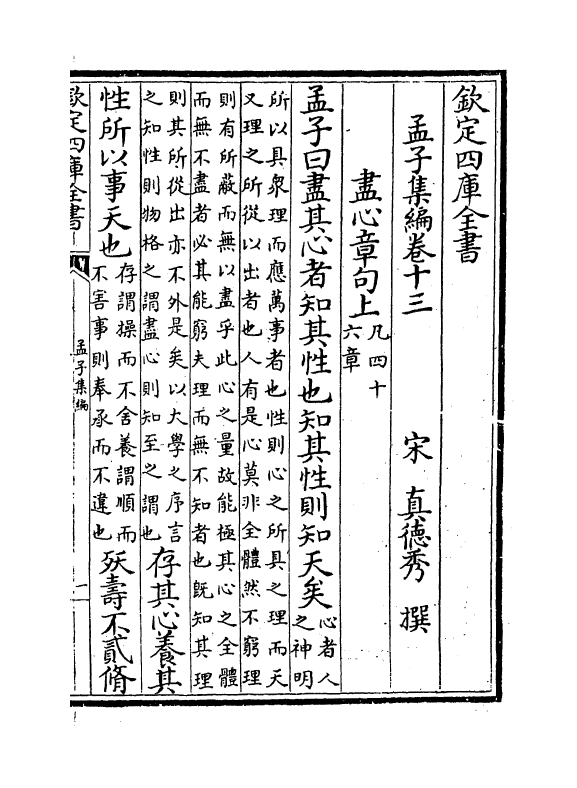 欽定四庫全書
孟子集編卷十三　宋　真德秀　撰
盡心章句上
凡四十
六章
孟子曰盡其心者知其性也知其性則知天矣
心者人
之神明
所以具衆理而應萬事者也性則心之所具之理而天
又理之所從以出者也人有是心莫非全體然不窮理
則有所蔽而無以盡乎此心之量故能極其心之全體
而無不盡者必其能窮夫理而無不知者也既知其理
則其所從出亦不外是矣以大學之序言
之知性則物格之謂盡心則知至之謂也
存其心養其
性所以事天也
存謂操而不舍養謂順而
不害事則奉承而不違也
殀壽不貳脩
欽定四庫全書
孟子集編
一